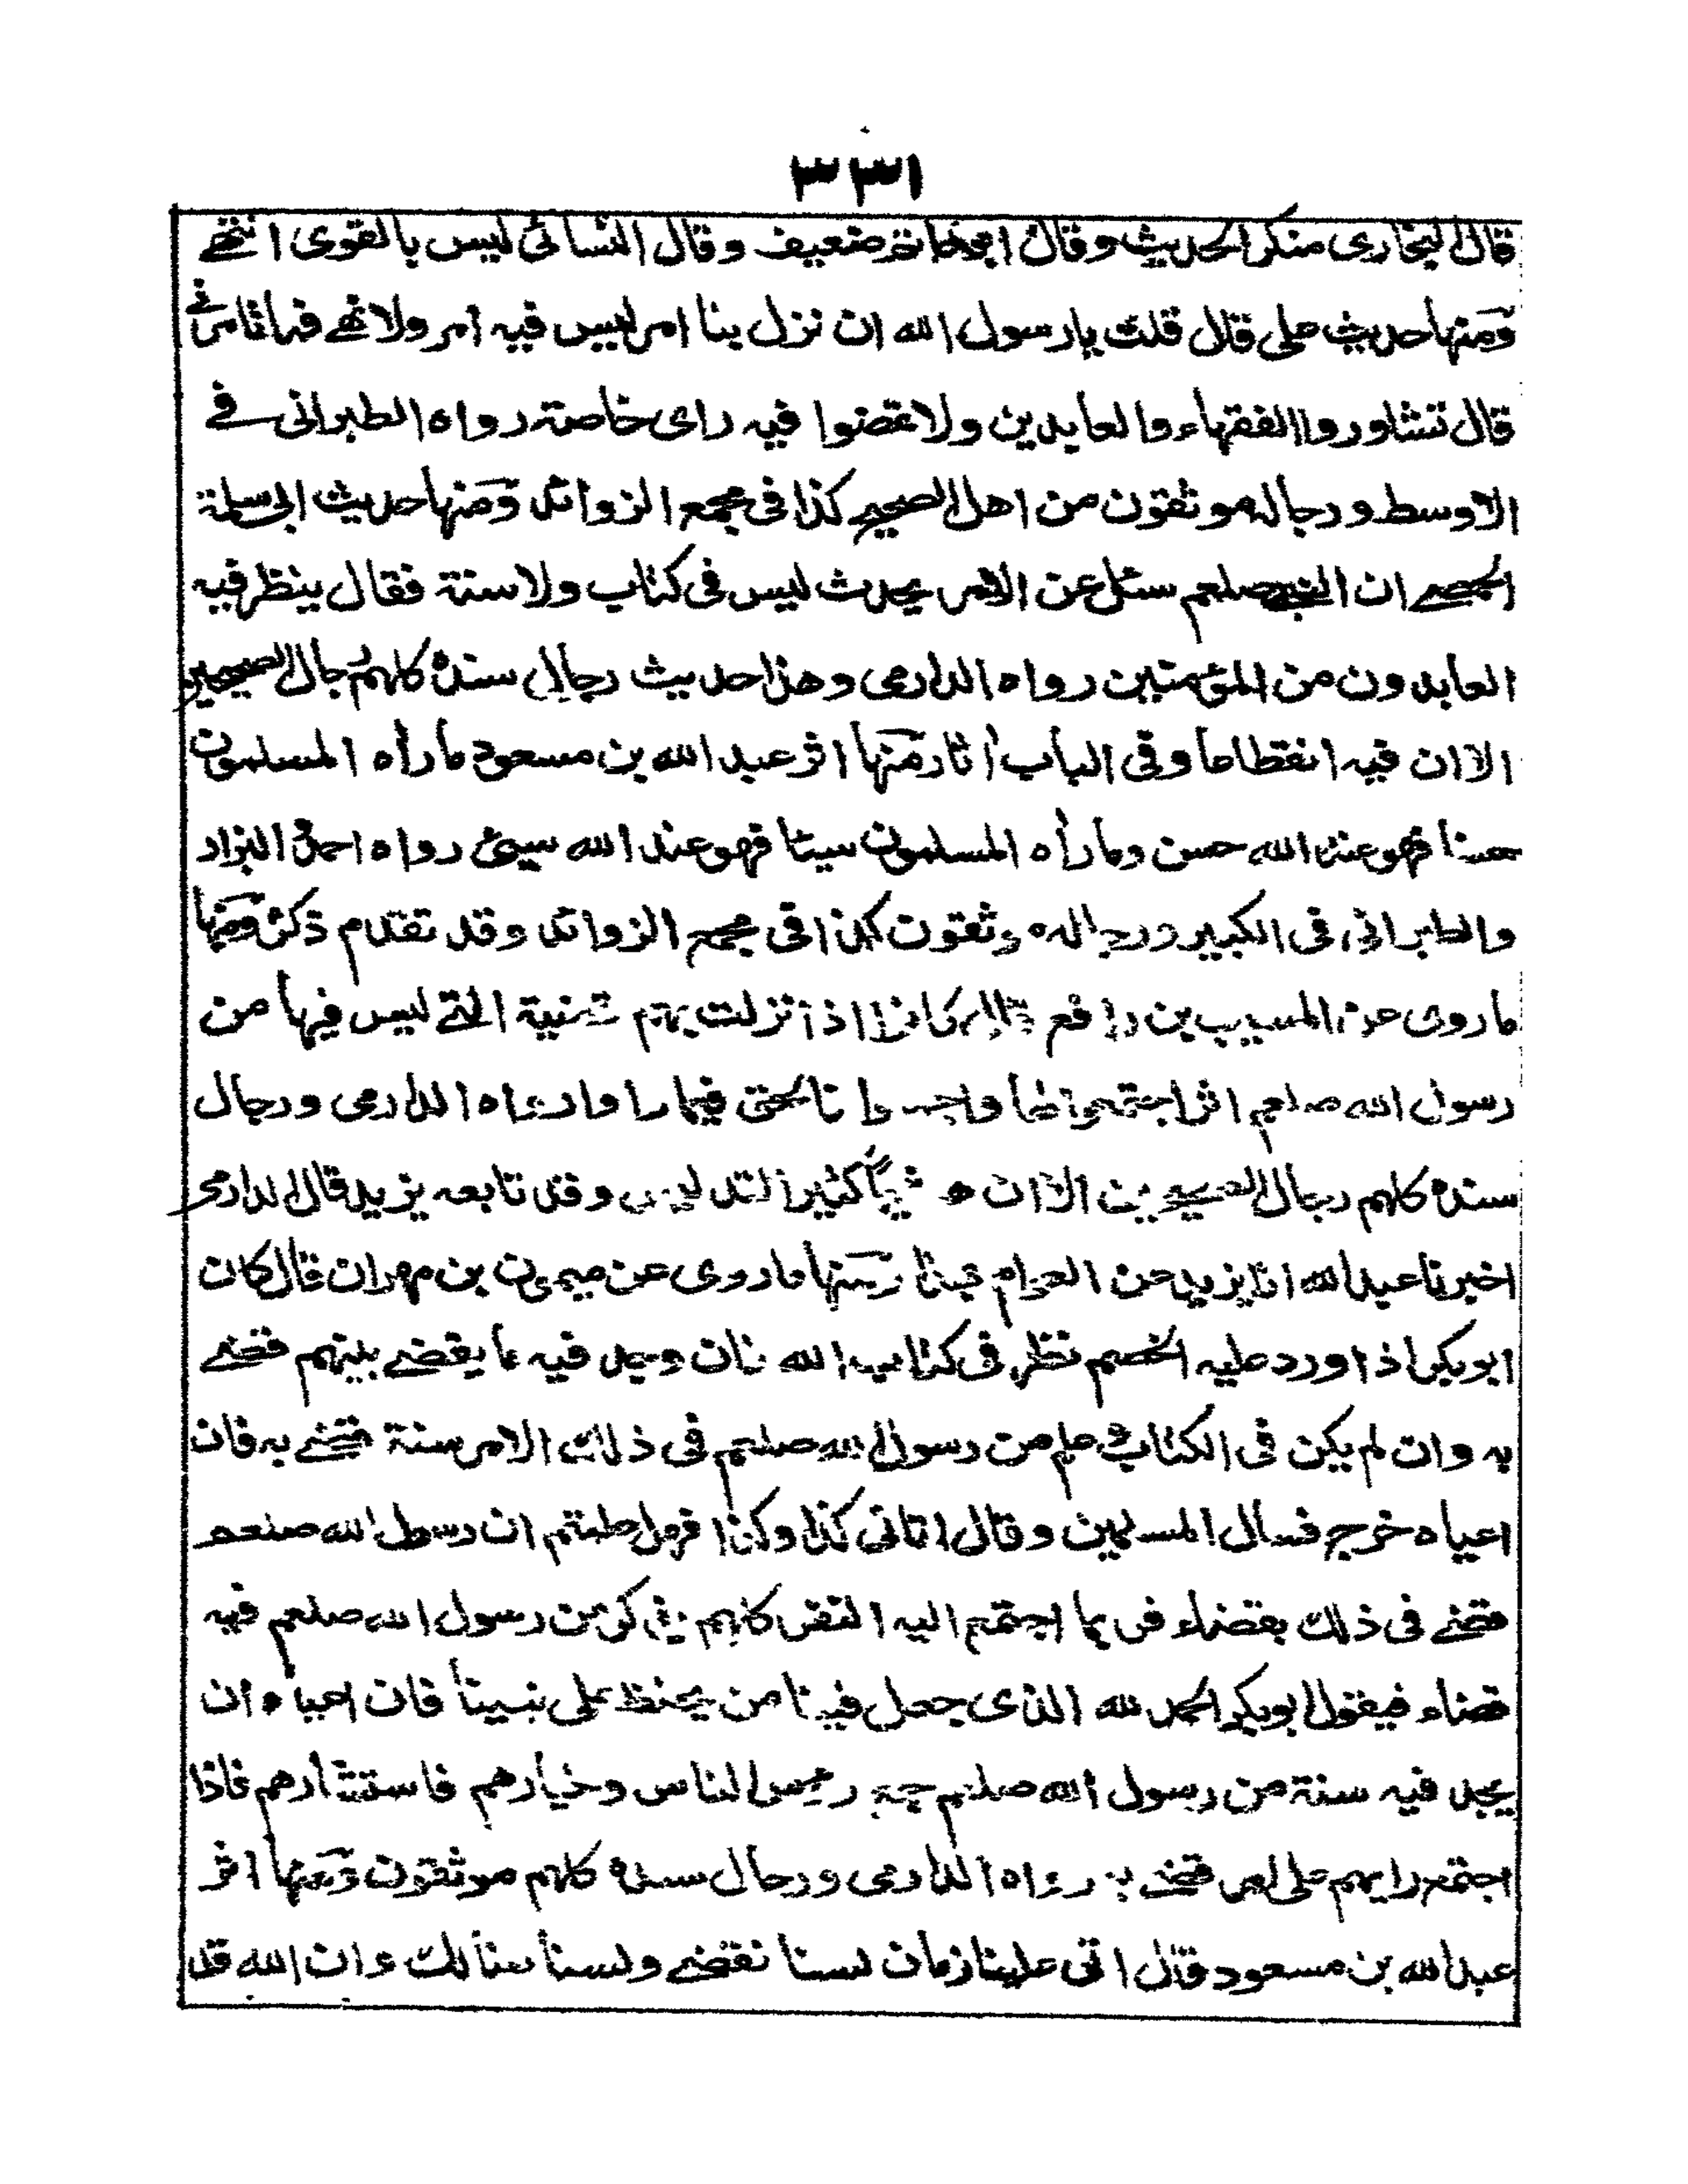 ٣٣١
قال البخاري منكر الحديث وقال ابو حاتم ضعيف وقال النسائى ليس بالقوى انتهے
ومنها حديث على قال قلت يا رسول الله ان نزل بنا امر ليس فيه امر ولا نهے فما تامرنے
قال تشاوروا الفقهاء والعابدين ولا تمضوا فيه راى خاصة رواه الطبرانى فے
الاوسط ورجاله موثقون من اهل الصحيح كذا فى مجمع الزوائد ومنها حديث ابى سلمة
الحمصے ان النبے صلعم سئل عن الامر يحدث ليس فى كتاب ولا سنة فقال ينظر فيه
العابدون من المؤمنين رواه الدارمى وهذا حديث رجال سنده كلهم رجال الصحيحين
الا ان فيه انقطاعا وفى الباب اثار منها اثر عبد الله بن مسعود ما رأه المسلمون
حسنا فهو عند الله حسن وما رأه المسلمون سيئا فهو عند الله سيئ رواه احمد والبزار
والطبرانى فى الكبير ورجاله موثقون كذا فى مجمع الزوائد وقد تقدم ذكره ومنها
ما روى عن المسيب بن رافع قال كانوا اذا نزلت بهم قضية التے ليس فيها من
رسول الله صلعم اثر اجتمعوا لها واجمعوا فالحق فيما راوا رواه الدارمى ورجال
سنده كلهم رجال الصحيحين الا ان هشيما كثير التدليس وقد تابعه يزيد قال الدارمى
اخبرنا عبد الله انا يزيد عن العوام بهذا ومنها ما روى عن ميمون بن مهران قال كان
ابو بكر اذا ورد عليه الخصم نظر فى كتاب الله فان وجد فيه ما يقضے بينهم قضے
به وان لم يكن فى الكتاب وعلم من رسول الله صلعم فى ذلك الامر سنة قضے به فان
اعياه خرج فسال المسلمين وقال اتانى كذا وكذا فهل علمتم ان رسول الله صلعم
قضے فى ذلك بقضاء فربما اجتمع اليه النفر كلهم يذكر من رسول الله صلعم فيه
قضاء فيقول ابو بكر الحمد لله الذى جعل فينا من يحفظ على نبينا فان اعياه ان
يجد فيه سنة من رسول الله صلعم جمع رءس الناس وخيارهم فاستشارهم فاذا
اجتمع رايهم على امر قضے به رواه الدارمى ورجال سنده كلهم موثقون ومنها اثر
عبد الله بن مسعود قال اتى علينا زمان لسنا نقضے ولسنا هنالك وان الله قد